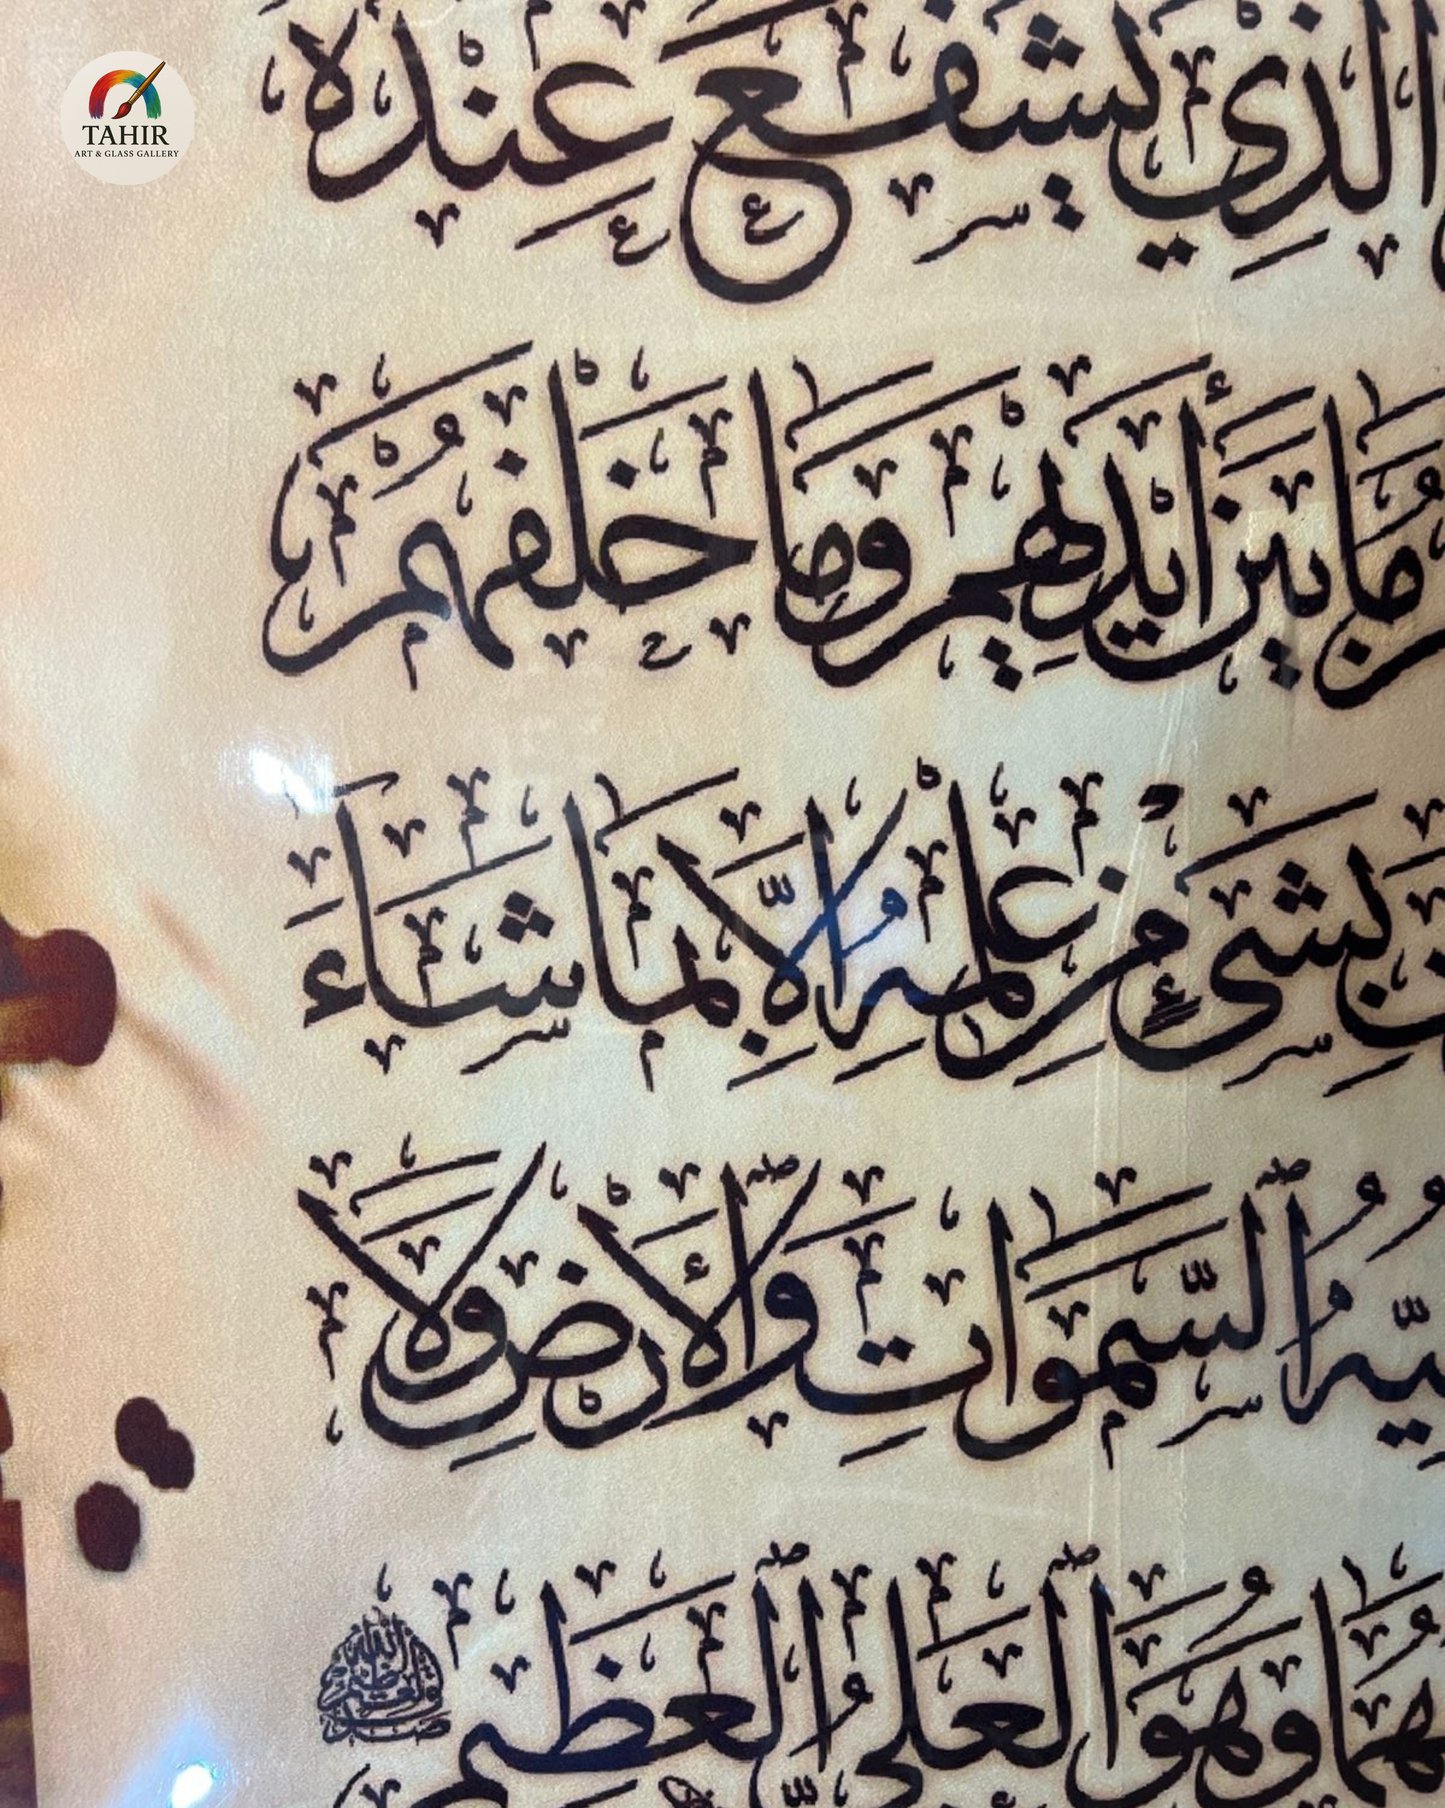 TAHIR
ART & GLASS GALLERY
الَّذِي يَشْفَعُ عِنْدَهُ
مَا بَيْنَ أَيْدِيهِمْ وَمَا خَلْفَهُمْ
بِشَيْءٍ مِنْ عِلْمِهِ إِلَّا بِمَا شَاءَ
السَّمَوَاتِ وَالْأَرْضِ وَلَا
وَهُوَ الْعَلِيُّ الْعَظِيمُ